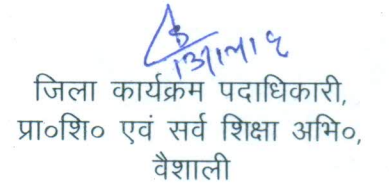 जिला कार्यक्रम पदाधिकारी,
प्रा०शि० एवं सर्व शिक्षा अभि०,
वैशाली